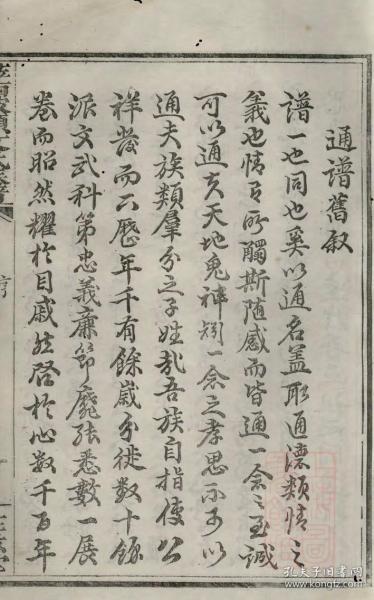 通譜舊叙
譜一也同也奚以通名蓋取通德類情之
義也情有所觸斯随感而皆通一念之至誠
可以通夫天地鬼神矧一念之孝思不可以
通夫族類羣分之子姓哉吾族自指使公
祥發而六歷年千有餘歲分徙數十餘
派文武科第忠義廉節
悉數一展
卷而昭然耀於目戚然啓於心數千百年
孔夫子旧书网
kongfz.com